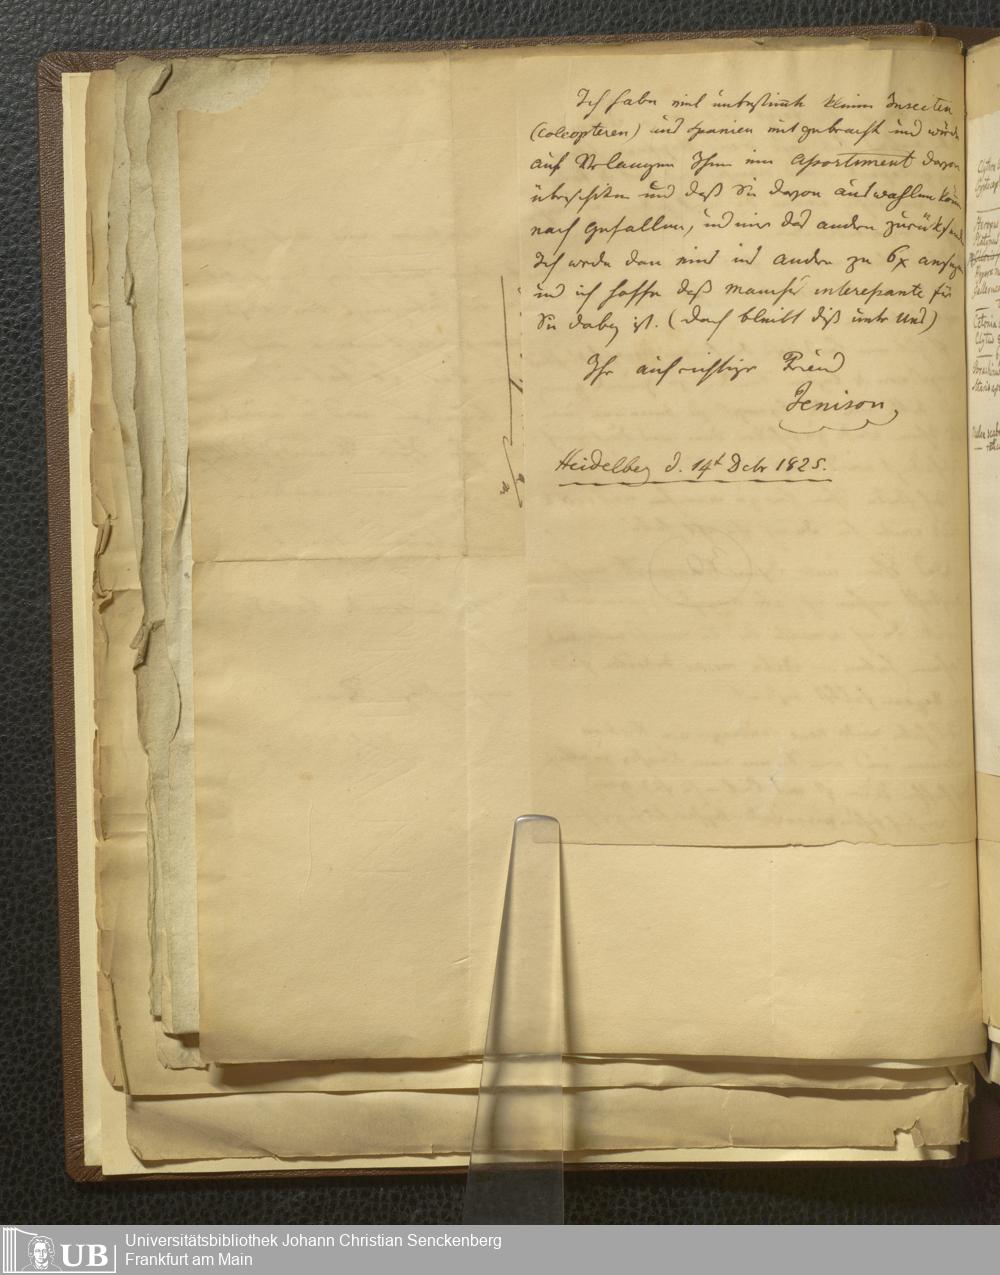 Ich habe viel unbestimmte kleine Insecten
(Coleopteren) aus Spanien mit gebracht und würde
auf Verlangen Ihnen ein Assortiment davon
überschiken und daß Sie davon auswahlen
nach gefallen, und mir das andere
Ich werde dan eins ins andere zu 6x
und ich hoffe daß manches interessante für
Sie dabey ist. (doch bleibt diß unter Uns)
Ihr aufrichtiger Freund
Jenison
Heidelberg d. 14t Dcbr 1825.
UB
Universitätsbibliothek Johann Christian Senckenberg
Frankfurt am Main